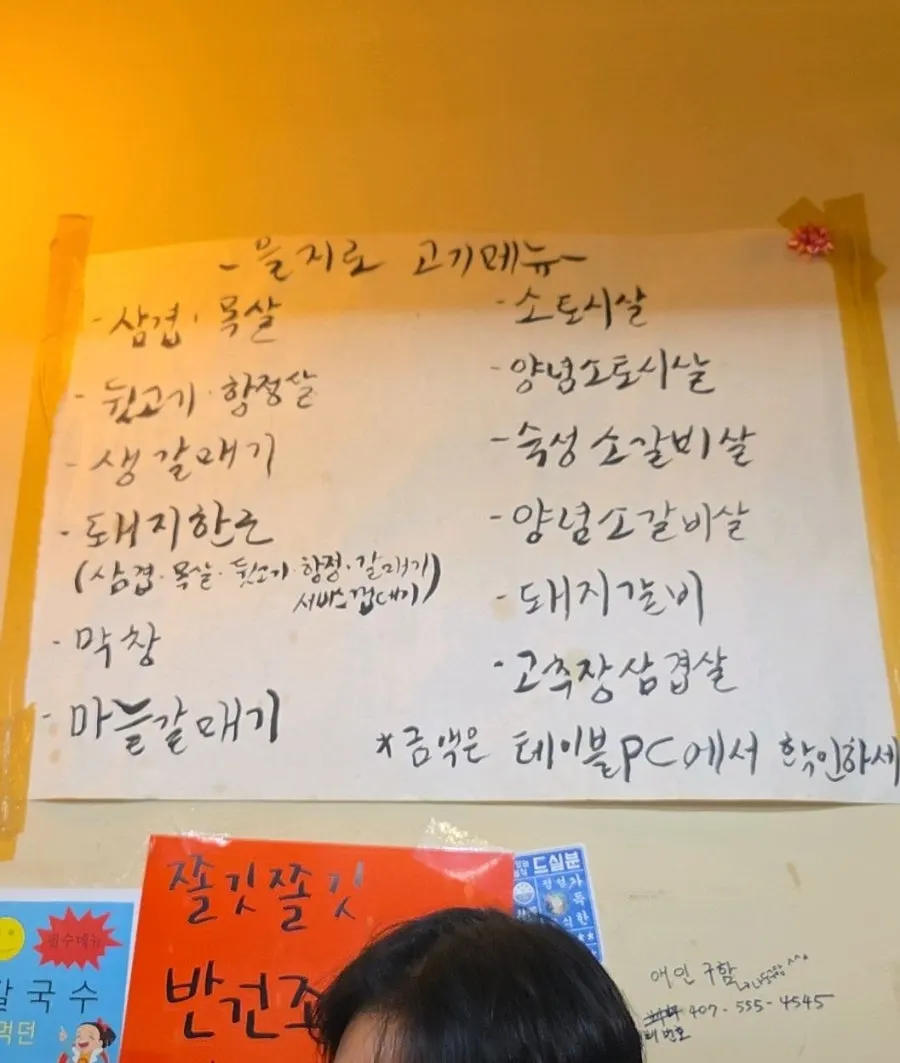 -을지로 고기메뉴-
- 삼겹·목살
- 뒷고기·항정살
- 생갈매기
- 돼지한근
(삼겹·목살·뒷고기·항정·갈매기
서비스껍데기)
- 막창
- 마늘갈매기
- 소토시살
- 양념소토시살
- 숙성소갈비살
- 양념소갈비살
- 돼지갈비
- 고추장삼겹살
*금액은 테이블PC에서 확인하세
쫄깃쫄깃
반건조
드실분
칼국수
먹던
애인 구함
407-555-4545